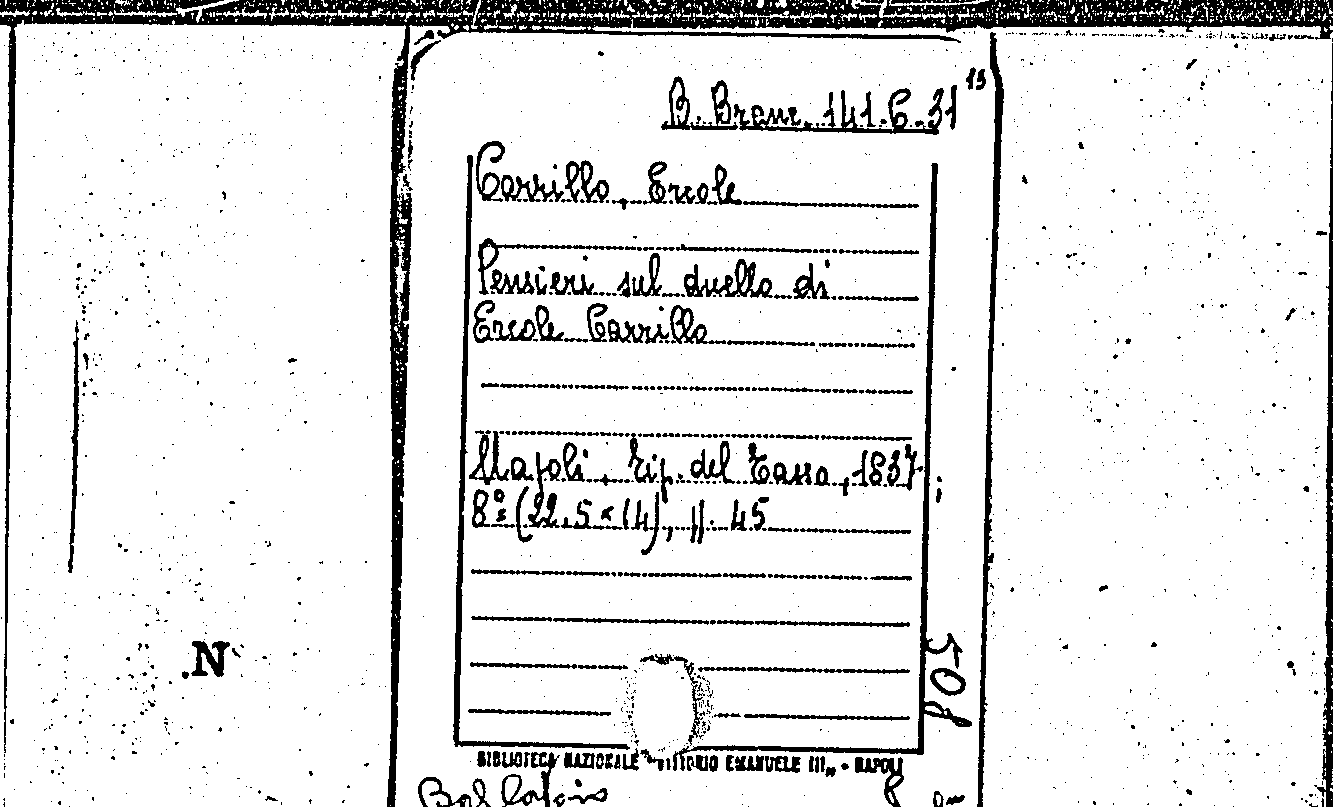 B. Branc. 141.G.31 15
Carrillo, Ercole
Pensieri sul duello di
Ercole Carrillo
Napoli, Tip. del Tasso, 1837;
8º: (22,5 x 14), pp. 45
N
508
BIBLIOTECA NAZIONALE "VITTORIO EMANUELE III„ - NAPOLI